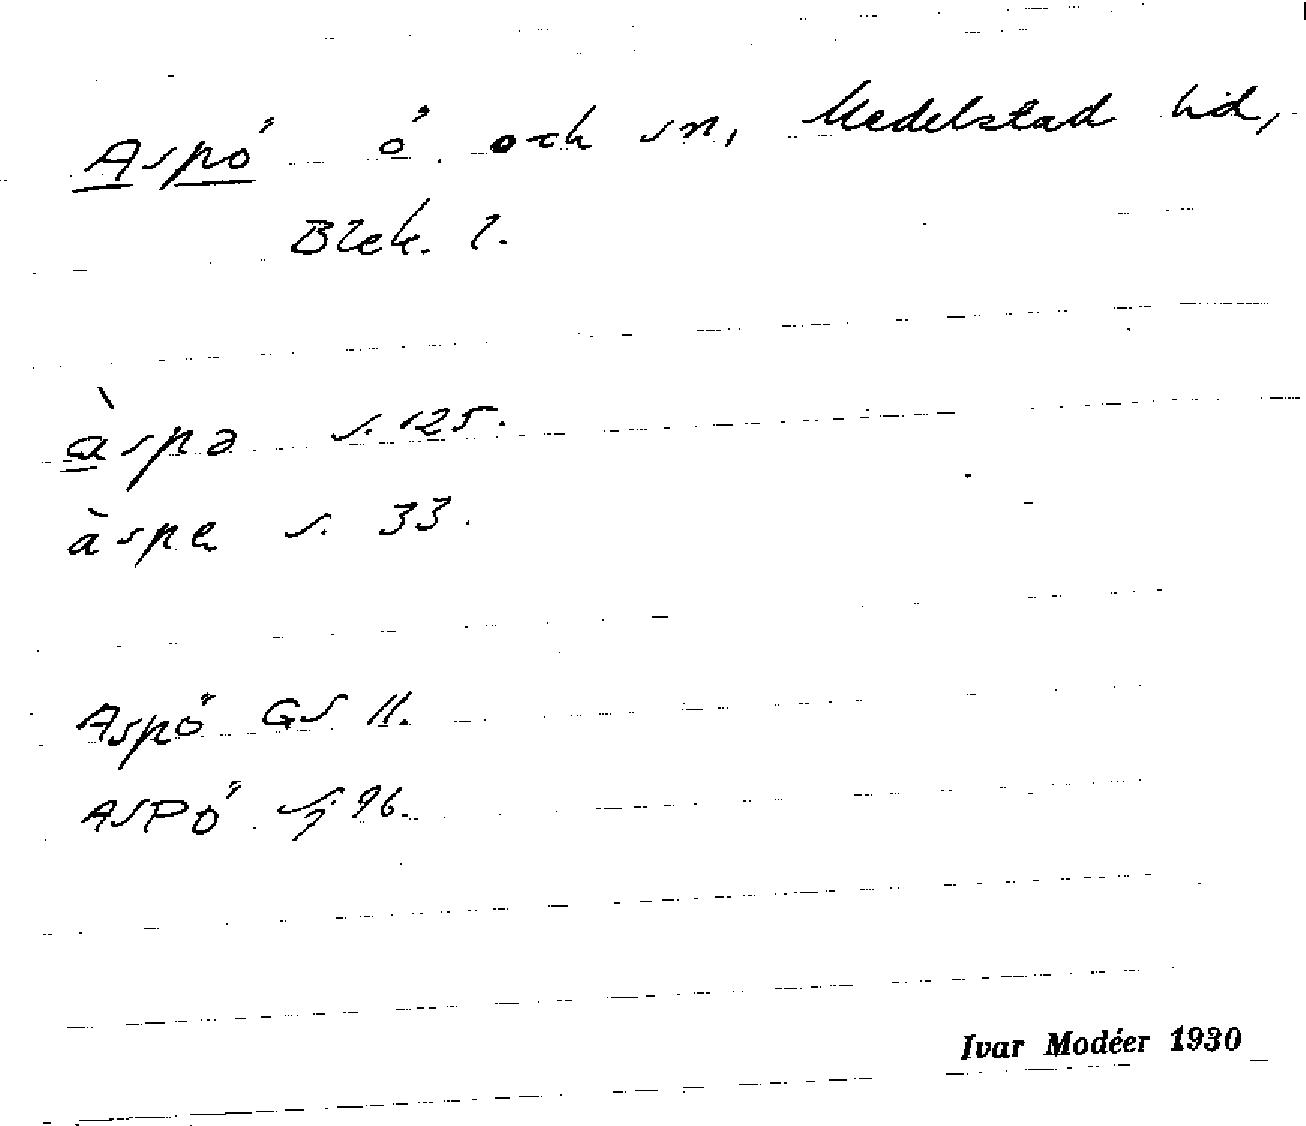 Aspö ö och sn, Medelstad hd,
Blek. l.
àspə s. 125.
àspe s. 33.
Aspö GS 11.
ASPÖ sj 96.
Ivar Modéer 1930